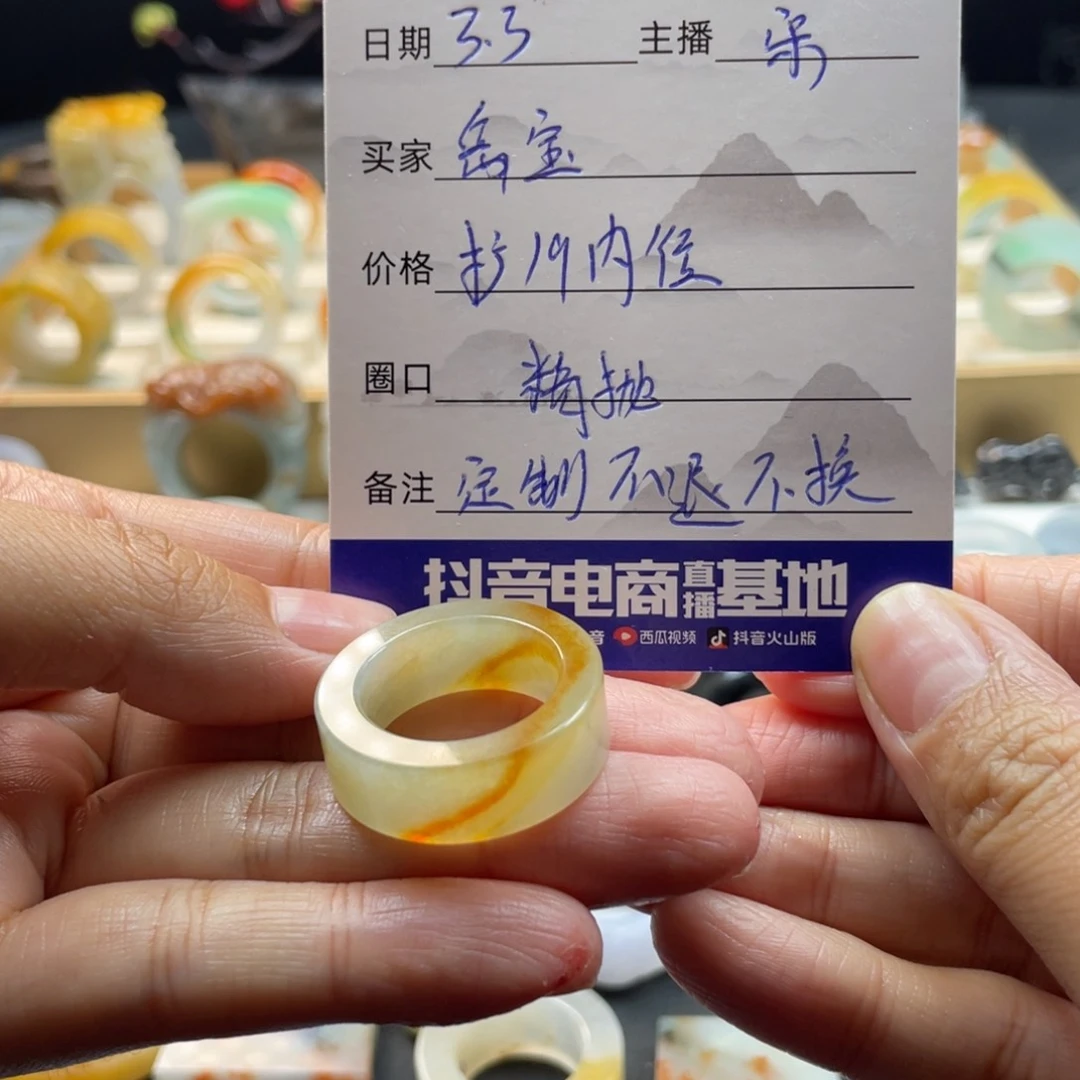 日期 3.3 主播 宋
买家 岳宝
价格 扩19内径
圈口 精抛
备注 定制不退不换
抖音电商直播基地
音 西瓜视频 抖音火山版